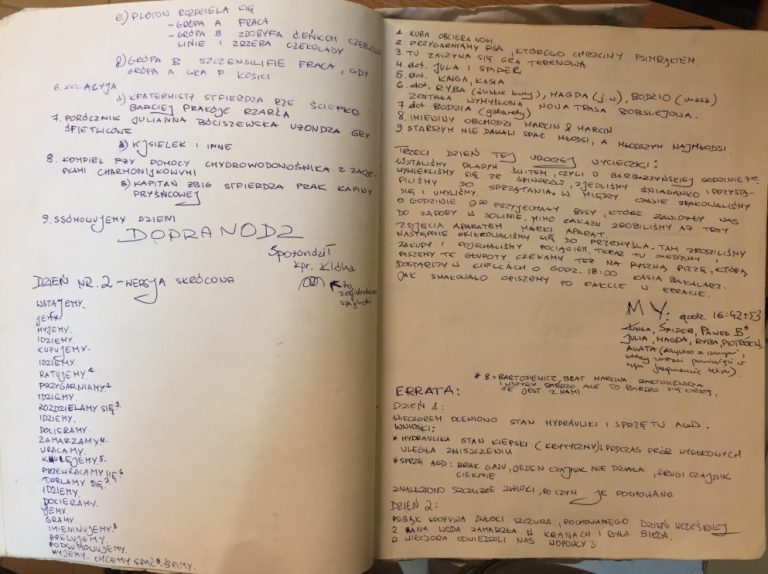 e) PLOTON ROZDZIELA SIĘ
- GRÓPA A FRACA
- GRÓPA B ZDOBYFA
LINIE I ZRZERA CZEKOLADY
GRÓPA B FRACA, GDY
GRÓPA A GRA F KOŚCI
6. KOLACYJA
KFATERNISTY STFIERDZA RZE
BARCIEJ PRAKÓJE RZARŁA
7. PORÓCZNIK JULIANNA BOCISZEWSKA UZONDZA GRY
ŚFIETLICOWE
A) KISIELEK I INNE
8. KOMPIEL PRZY POMOCY CHYDROWODONOŚNIKA Z
CHARMONIJKOWYMI
A) KAPITAN ZBIG STFIERDZA PRAK KAPINY
PRYŚŃCOWEJ
9. DZIEMI
DOPRANODZ
Spożondził
kpr.
DZIEŃ NR. 2 - WERSJA SKRÓCONA
WSTAJEMY.
JEMY.
MYJEMY.
IDZIEMY.
KUPUJEMY.
IDZIEMY.
RATUJEMY.1
PRZYGARNIAMY.2
IDZIEMY.
ROZDZIELAMY SIĘ.3
IDZIEMY.
DOCIERAMY.
ZAMARZAMY.4
WRACAMY.
5.
PRZEWRACAMY SIĘ.6
TURLAMY SIĘ.7
IDZIEMY.
DOCIERAMY.
JEMY.
GRAMY.
IMIENINUJEMY.8
APELUJEMY.
PODSUMOWUJEMY.
MYJEMY. CHCEMY SPAĆ.9 ŚPIMY.
1. KUBA OBCIERA NOGI
2. PRZYGARNIAMY PSA, KTÓREGO CHRZCIMY PSIMBĄKIEM
3. TU ZACZYNA SIĘ GRA TERENOWA
4. dot. JULA I SPIDER
5. dot. KINGA, KASIA
6. dot. RYBA, MAGDA (j.w.), BODZIO
ZOSTAŁA WYMYŚLONA NOWA TRASA BOBSLEJOWA.
7. dot BODZIA
8. IMIENINY OBCHODZI MARCIN & MARCIN
9. STARSZYM NIE DAWALI SPAĆ MŁODSI, A MŁODSZYM NAJMŁODSI.
TRZECI DZIEŃ TEJ UROCZEJ WYCIECZKI:
WSTALIŚMY BLADYM ŚWITEM, CZYLI O BARBARZYŃSKIEJ GODZINIE
SIĘ ZE ŚPIWORÓW, ZJEDLIŚMY ŚNIADANKO I PRZYSTĄ-
PILIŚMY DO SPRZĄTANIA. W MIĘDZY CZASIE SPAKOWALIŚMY
SIĘ I UMYLIŚMY.
O GODZINIE PRZYJECHAŁY BUSY, KTÓRE ZAWIOZŁY NAS
DO ZAPORY W SOLINIE. MIMO ZAKAZU ZROBILIŚMY
ZDJĘCIA APARATEM MARKI APARAT.
NASTĘPNIE SKIEROWALIŚMY SIĘ DO PRZEMYŚLA. TAM ZROBILIŚMY
ZAKUPY I POJECHALIŚMY POCIĄGIEM, TERAZ TU SIEDZIMY I
PISZEMY TE GŁUPOTY CZEKAMY TEŻ NA PYSZNĄ PIZZĘ, KTÓRĄ
DOSTARCZY W KIELCACH O GODZ. 18:00 KASIA BAKALARZ.
JAK SMAKOWAŁO OPISZEMY PO FAKCIE W ERRACIE.
MY: godz. 16:42:53
KINGA, SPIDER, PAWEŁ B*,
JULIA, MAGDA, RYBA, PIOTREK,
AGATA
* B = BARTOSIEWICZ, BRAT MARCINA BARTOSIEWICZA
I WSZYSCY BARDZO, ALE TO BARDZO SIĘ CIESZĄ,
ŻE JEST Z NAMI
ERRATA:
DZIEŃ 1:
WIECZOREM OCENIONO STAN HYDRAULIKI I SPRZĘTU AGD.
WNIOSKI:
* HYDRAULIKA STAN KIEPSKI (KRYTYCZNY): PODCZAS PRÓB WYSIŁKOWYCH
ULEGŁA ZNISZCZENIU
* SPRZĘT AGD: BRAK GAZU, JEDEN CZAJNIK NIE DZIAŁA, DRUGI CZAJNIK
CIEKNIE
ZNALEZIONO SZCZURZE ZWŁOKI, PO CZYM JE POCHOWANO
DZIEŃ 2:
PSIBĄK SPOŻYWA ZWŁOKI SZCZURA, POCHOWANEGO DZIEŃ WCZEŚNIEJ
Z RANA WODA ZAMARZŁA W KRANACH I BYŁA BIEDA.
WIECZORA ODWIEDZILI NAS WOPOWCY